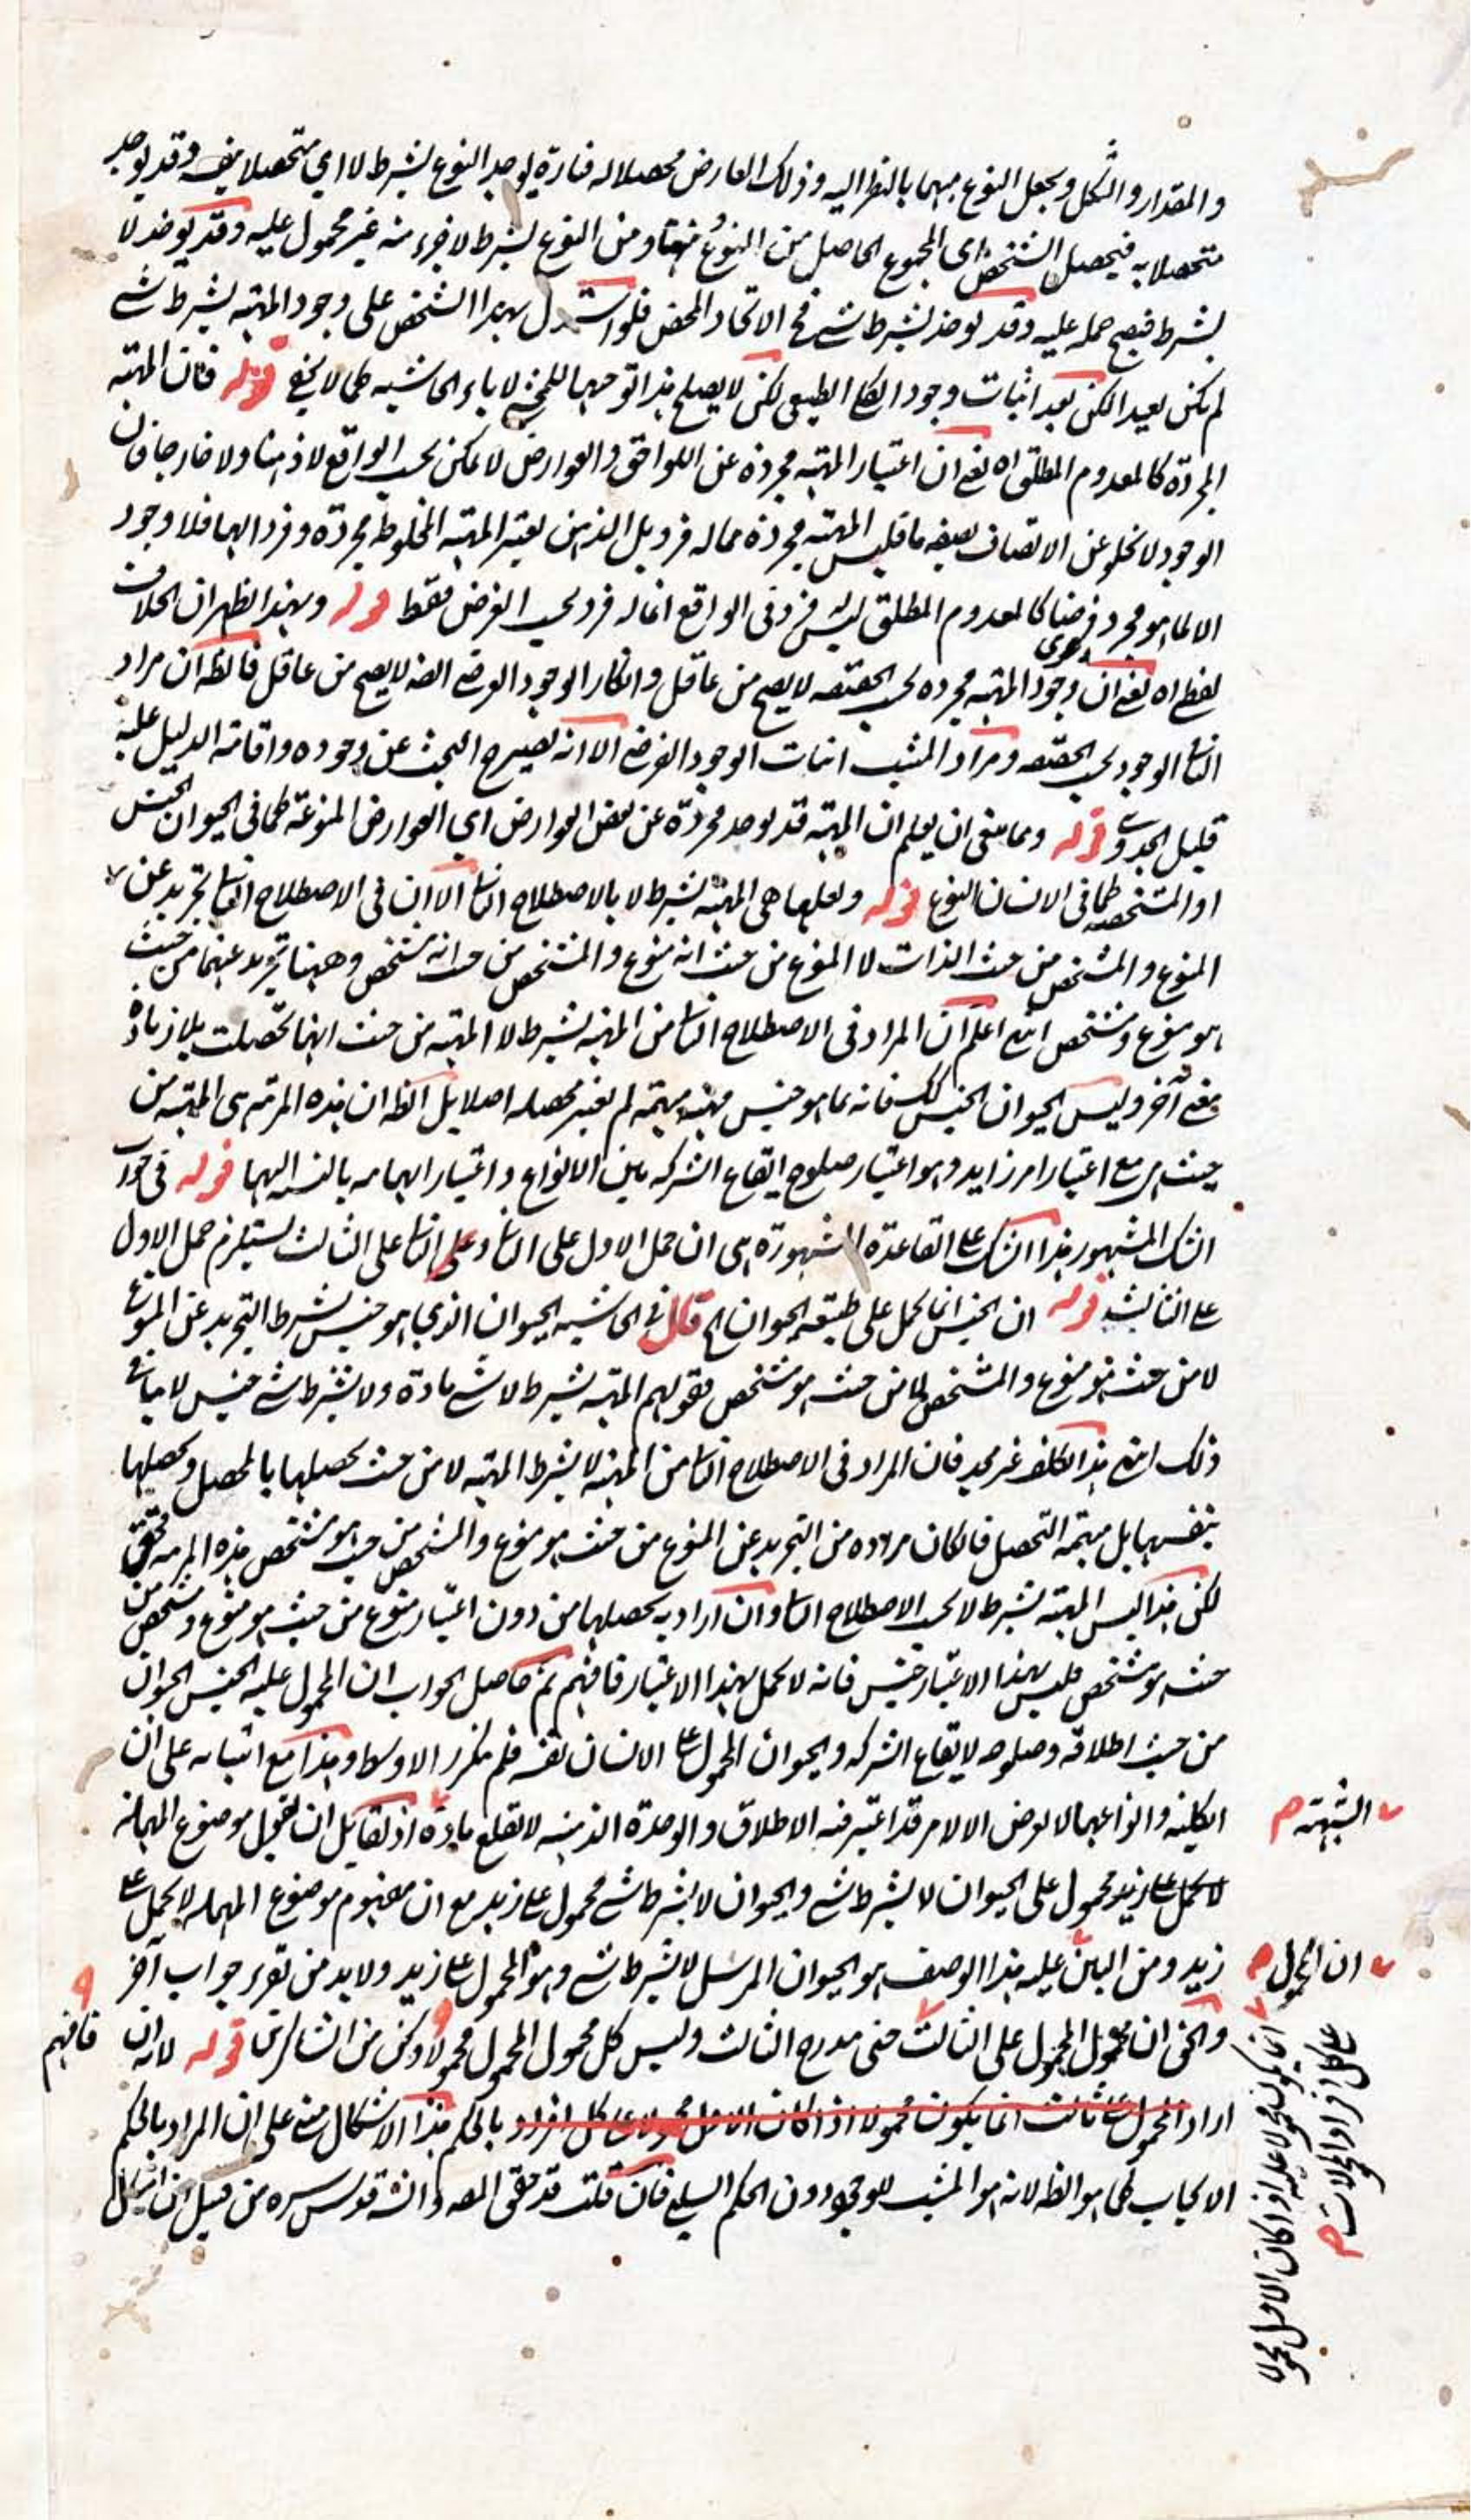 والمقدار والشكل ويجعل النوع مبهما بالنظر اليه وذلك العارض محصلا له فتارة يوجد النوع بشرط لا اي متحصلا بنفسه وقد يوجد
متحصلا به فيحصل الشخص اى المجموع الحاصل من النوع ومن النوع بشرط لا جزء منه غير محمول عليه وقد يوخذ لا
بشرط فيصح حمله عليه وقد يوخذ بشرط شئ فح الاتحاد المحض فلو استدل بهذا الشخص على وجود المهية بشرط شئ
لم يكن بعيدا لكن بعد اثبات وجود الكلى الطبيعى لكن لا يصلح هذا توجيها للمحشى لاباء الحاشيه كما لا يخفى قوله فان المهية
المجردة كالمعدوم المطلق اه يعنى ان اعتبار المهية مجردة عن اللواحق والعوارض لا يمكن بحسب الواقع لا ذهنا ولا خارجا فان
الوجود لا يخلو عن الاتصاف بصفة ما فليس المهية مجردة مما له فرد بل الذهن يعتبر المهية المخلوطة مجردة وفردا لها فلا وجود
الا لما هو مجرد فرضا كالمعدوم المطلق ليس له فرد فى الواقع انما له فرد بحسب الفرض فقط قوله وبهذا يظهر ان الخلاف
لفظى اه يعنى ان دعوى وجود المهية مجردة بحسب الحقيقه لا يصح من عاقل وانكار الوجود الفرضى ايضا لا يصح من عاقل فالظ ان مراد
النافى الوجود بحسب الحقيقه ومراد المثبت اثبات الوجود الفرضى الا انه يصير ح البحث عن وجوده واقامة الدليل عليه
قليل الجدوى قوله ومما ينبغى ان يعلم ان المهية قد يوجد مجردة عن بعض العوارض اي العوارض المنوعة كما فى الحيوان الجنس
او المشخصه كما فى الانسان النوع قوله ولعلها هى المهية بشرط لا بالاصطلاح الثانى الا ان فى الاصطلاح الثانى تجريد عن
المنوع والمشخص من حيث الذات لا المنوع من حيث انه منوع والمشخص من حيث انه مشخص وههنا تجريد عنهما من حيث
هو منوع ومشخص انتهى اعلم ان المراد فى الاصطلاح الثانى من المهية بشرط لا المهية من حيث انها تحصلت بلا زيادة
معنى آخر وليس الحيوان الجنس كك فانه بما هو جنس مهية مبهمة لم يعتبر محصله اصلا بل الظ ان هذه المرتبة هى المهية من
حيث هى مع اعتبار امر زايد وهو اعتبار صلوح ايقاع الشركه بين الانواع واعتبار ابهامه بالنسبة اليها قوله فى جواب
الشك المشهور هذا الشك على القاعدة المشهورة هى ان حمل الاول على الثانى وعلى الثانى على الثالث يستلزم حمل الاول
على الثالث قوله ان الجنس انما يحمل على طبيعة الحيوان اه قال فى الحاشيه الحيوان الذي هو جنس بشرط التجريد عن المنوع
لا من حيث هو منوع والمشخص لا من حيث هو مشخص فقولهم المهية بشرط لا شئ مادة ولا بشرط شئ جنس لا ينافى
ذلك انتهى هذا التكلف غير مجد فان المراد فى الاصطلاح الثانى من المهية لا بشرط المهية لا من حيث تحصلها بالمحصل وتحصلها
بنفسها بل مبهمة التحصل فان كان مراده من التجريد عن المنوع من حيث هو منوع والمشخص من حيث هو مشخص هذه المرتبة فحق
لكن هذا ليس المهية بشرط لا بحسب الاصطلاح الثانى وان اراد به تحصلها من دون اعتبار منوع من حيث هو منوع ومشخص من
حيث هو مشخص فليس بهذا الاعتبار جنس فانه لا يحمل بهذا الاعتبار فافهم ثم حاصل الجواب ان المحمول عليه الجنس الحيوان
من حيث اطلاقه وصلوحه لايقاع الشركه والحيوان المحمول على الانسان نفسه فلم يتكرر الاوسط وهذا مع ابتنائه على ان
الكلية وانواعها لا يعرض الا لامر قد اعتبر فيه الاطلاق والوحدة الذهنيه لا يقلع مادة اذ لقائل ان يقول موضوع المهملة
لا يحمل على زيد محمول على الحيوان لا بشرط شئ والحيوان لا بشرط شئ محمول على زيد مع ان مفهوم موضوع المهملة لا يحمل على
زيد ومن البين عليه هذا الوصف هو الحيوان المرسل لا بشرط شئ وهو المحمول على زيد ولا بد من تقرير جواب آخر
والحق ان محمول المحمول على الثالث حتى يندرج الثالث وليس كل محمول المحمول محمولا وكن من الشاكرين قوله لانه ان
اراد المحمول على ثالث انما يكون محمولا اذا كان الاول محمولا على كل افراد بالحكم هذا الاشكال مبنى على ان المراد بالحكم
الايجاب كما هو الظ لانه هو المثبت للوجود دون الحكم السلبى فان قلت قد حقق المص والش قدس سره من قبل ان
الشبهة
ان المحمول
انما يكون محمولا عليه اذا كان الاول محمولا
على كل افراد المحمولات
فافهم